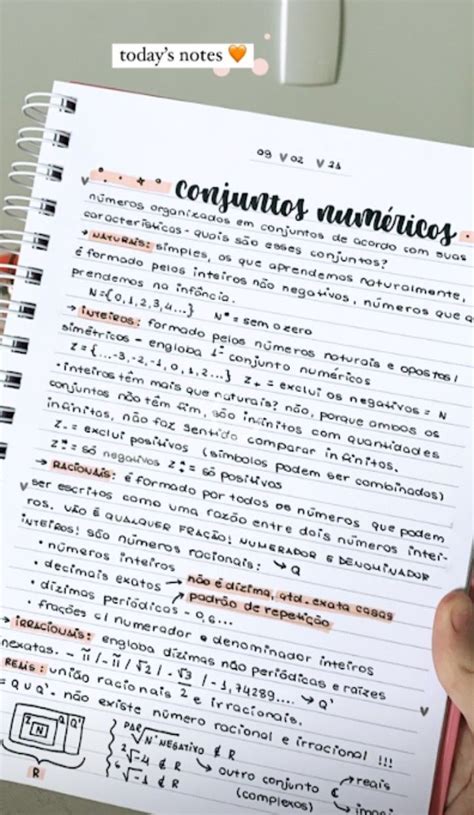 today's notes 🧡
09 ♥ 02 ♥ 21
conjuntos numéricos
números organizados em conjuntos de acordo com suas
características - quais são esses conjuntos?
→ NATURAIS: simples, os que aprendemos naturalmente,
é formado pelos inteiros não negativos, números que a
prendemos na infância.
N={0,1,2,3,4...} N* = sem o zero
→ INTEIROS: formado pelos números naturais e opostos/
simétricos - engloba 1º conjunto numéricos
Z={...-3,-2,-1,0,1,2...} Z+ = exclui os negativos = N
· inteiros têm mais que naturais? não, porque ambos os
conjuntos não têm fim, são infinitos com quantidades
infinitas, não faz sentido comparar infinitos.
Z- = exclui positivos (símbolos podem ser combinados)
Z*- = só negativos Z*+ = só positivos
→ RACIONAIS: é formado por todos os números que podem
ser escritos como uma razão entre dois números intei-
ros. NÃO É QUALQUER FRAÇÃO! NUMERADOR E DENOMINADOR
INTEIROS! são números racionais: ↳ Q
• números inteiros
• decimais exatos → não é dízima, qtd. exata casas
• dízimas periódicas - 0,6... ↗ padrão de repetição
• frações c/ numerador e denominador inteiros
→ IRRACIONAIS: engloba dízimas não periódicas e raízes
inexatas. - π / -π / √2 / -√3 / -1,74289.... ↳ Q'
REAIS: união racionais e irracionais.
= Q U Q' · não existe número racional e irracional !!!
Z N Q Q'
R
PAR√Nº NEGATIVO ∉ R
²√-4 ∉ R
⁶√-1 ∉ R
↳ outro conjunto C
(complexos)
↗ reais
↘ imagi